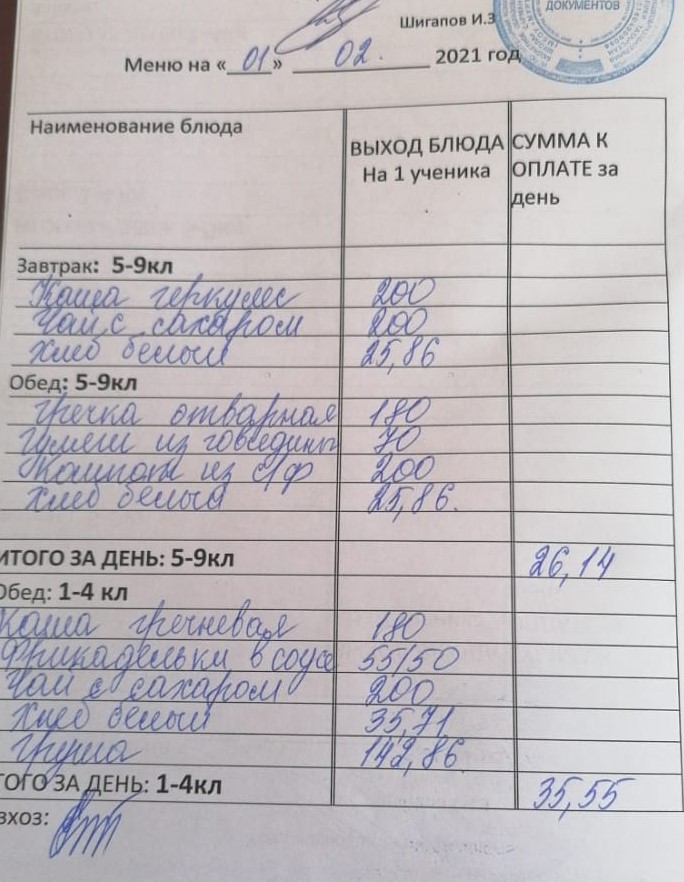 Шигапов И.З
ДОКУМЕНТОВ
Меню на «01» 02. 2021 год
Наименование блюда
ВЫХОД БЛЮДА
На 1 ученика
СУММА К
ОПЛАТЕ за
день
Завтрак: 5-9кл
Каша геркулес 200
Чай с сахаром 200
Хлеб белый 25,86
Обед: 5-9кл
Гречка отварная 180
Гуляш из говядины 70
Компот из с/ф 200
Хлеб белый 25,86.
ИТОГО ЗА ДЕНЬ: 5-9кл 26,14
Обед: 1-4 кл
Каша гречневая 180
Фрикадельки в соусе 55/50
Чай с сахаром 200
Хлеб белый 35,71
Груша 142,86
ТОГО ЗА ДЕНЬ: 1-4кл 35,55
вхоз: